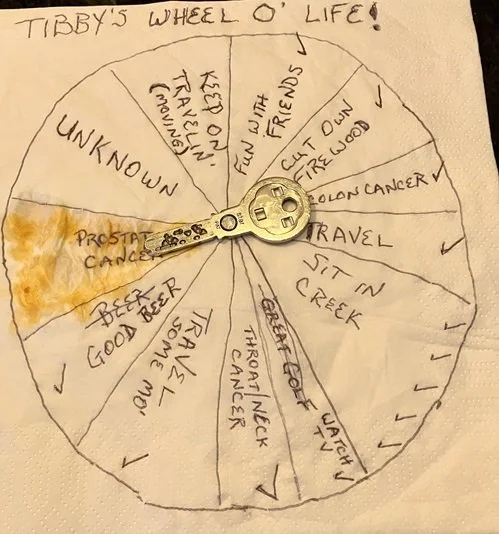 TIBBY'S WHEEL O' LIFE!
KEEP ON
TRAVELIN'
(MOVING)
FUN WITH
FRIENDS
CUT OWN
FIRE WOOD
COLON CANCER
TRAVEL
SIT IN
CREEK
GREAT GOLF WATCH
TV
THROAT/NECK
CANCER
TRAVEL
SOME MO'
BEER
GOOD BEER
PROSTAT
CANCER
UNKNOWN